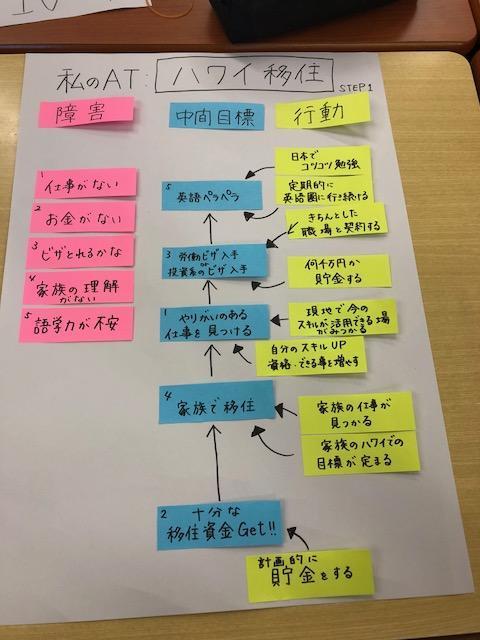 私のAT: ハワイ移住
STEP1
障害
中間目標
行動
1
仕事がない
2
お金がない
3
ビザとれるかな
4
家族の理解
がない
5
語学力が不安
5
英語ペラペラ
3
労働ビザ入手
or
投資系のビザ入手
1
やりがいのある
仕事を見つける
4
家族で移住
2
十分な
移住資金Get!!
日本で
コツコツ勉強
定期的に
英語圏に行き続ける
きちんとした
職場と契約する
何千万円か
貯金する
現地で今の
スキルが活用できる場
がみつかる
自分のスキルUP
資格・できる事を増やす
家族の仕事が
見つかる
家族のハワイでの
目標が定まる
計画的に
貯金をする